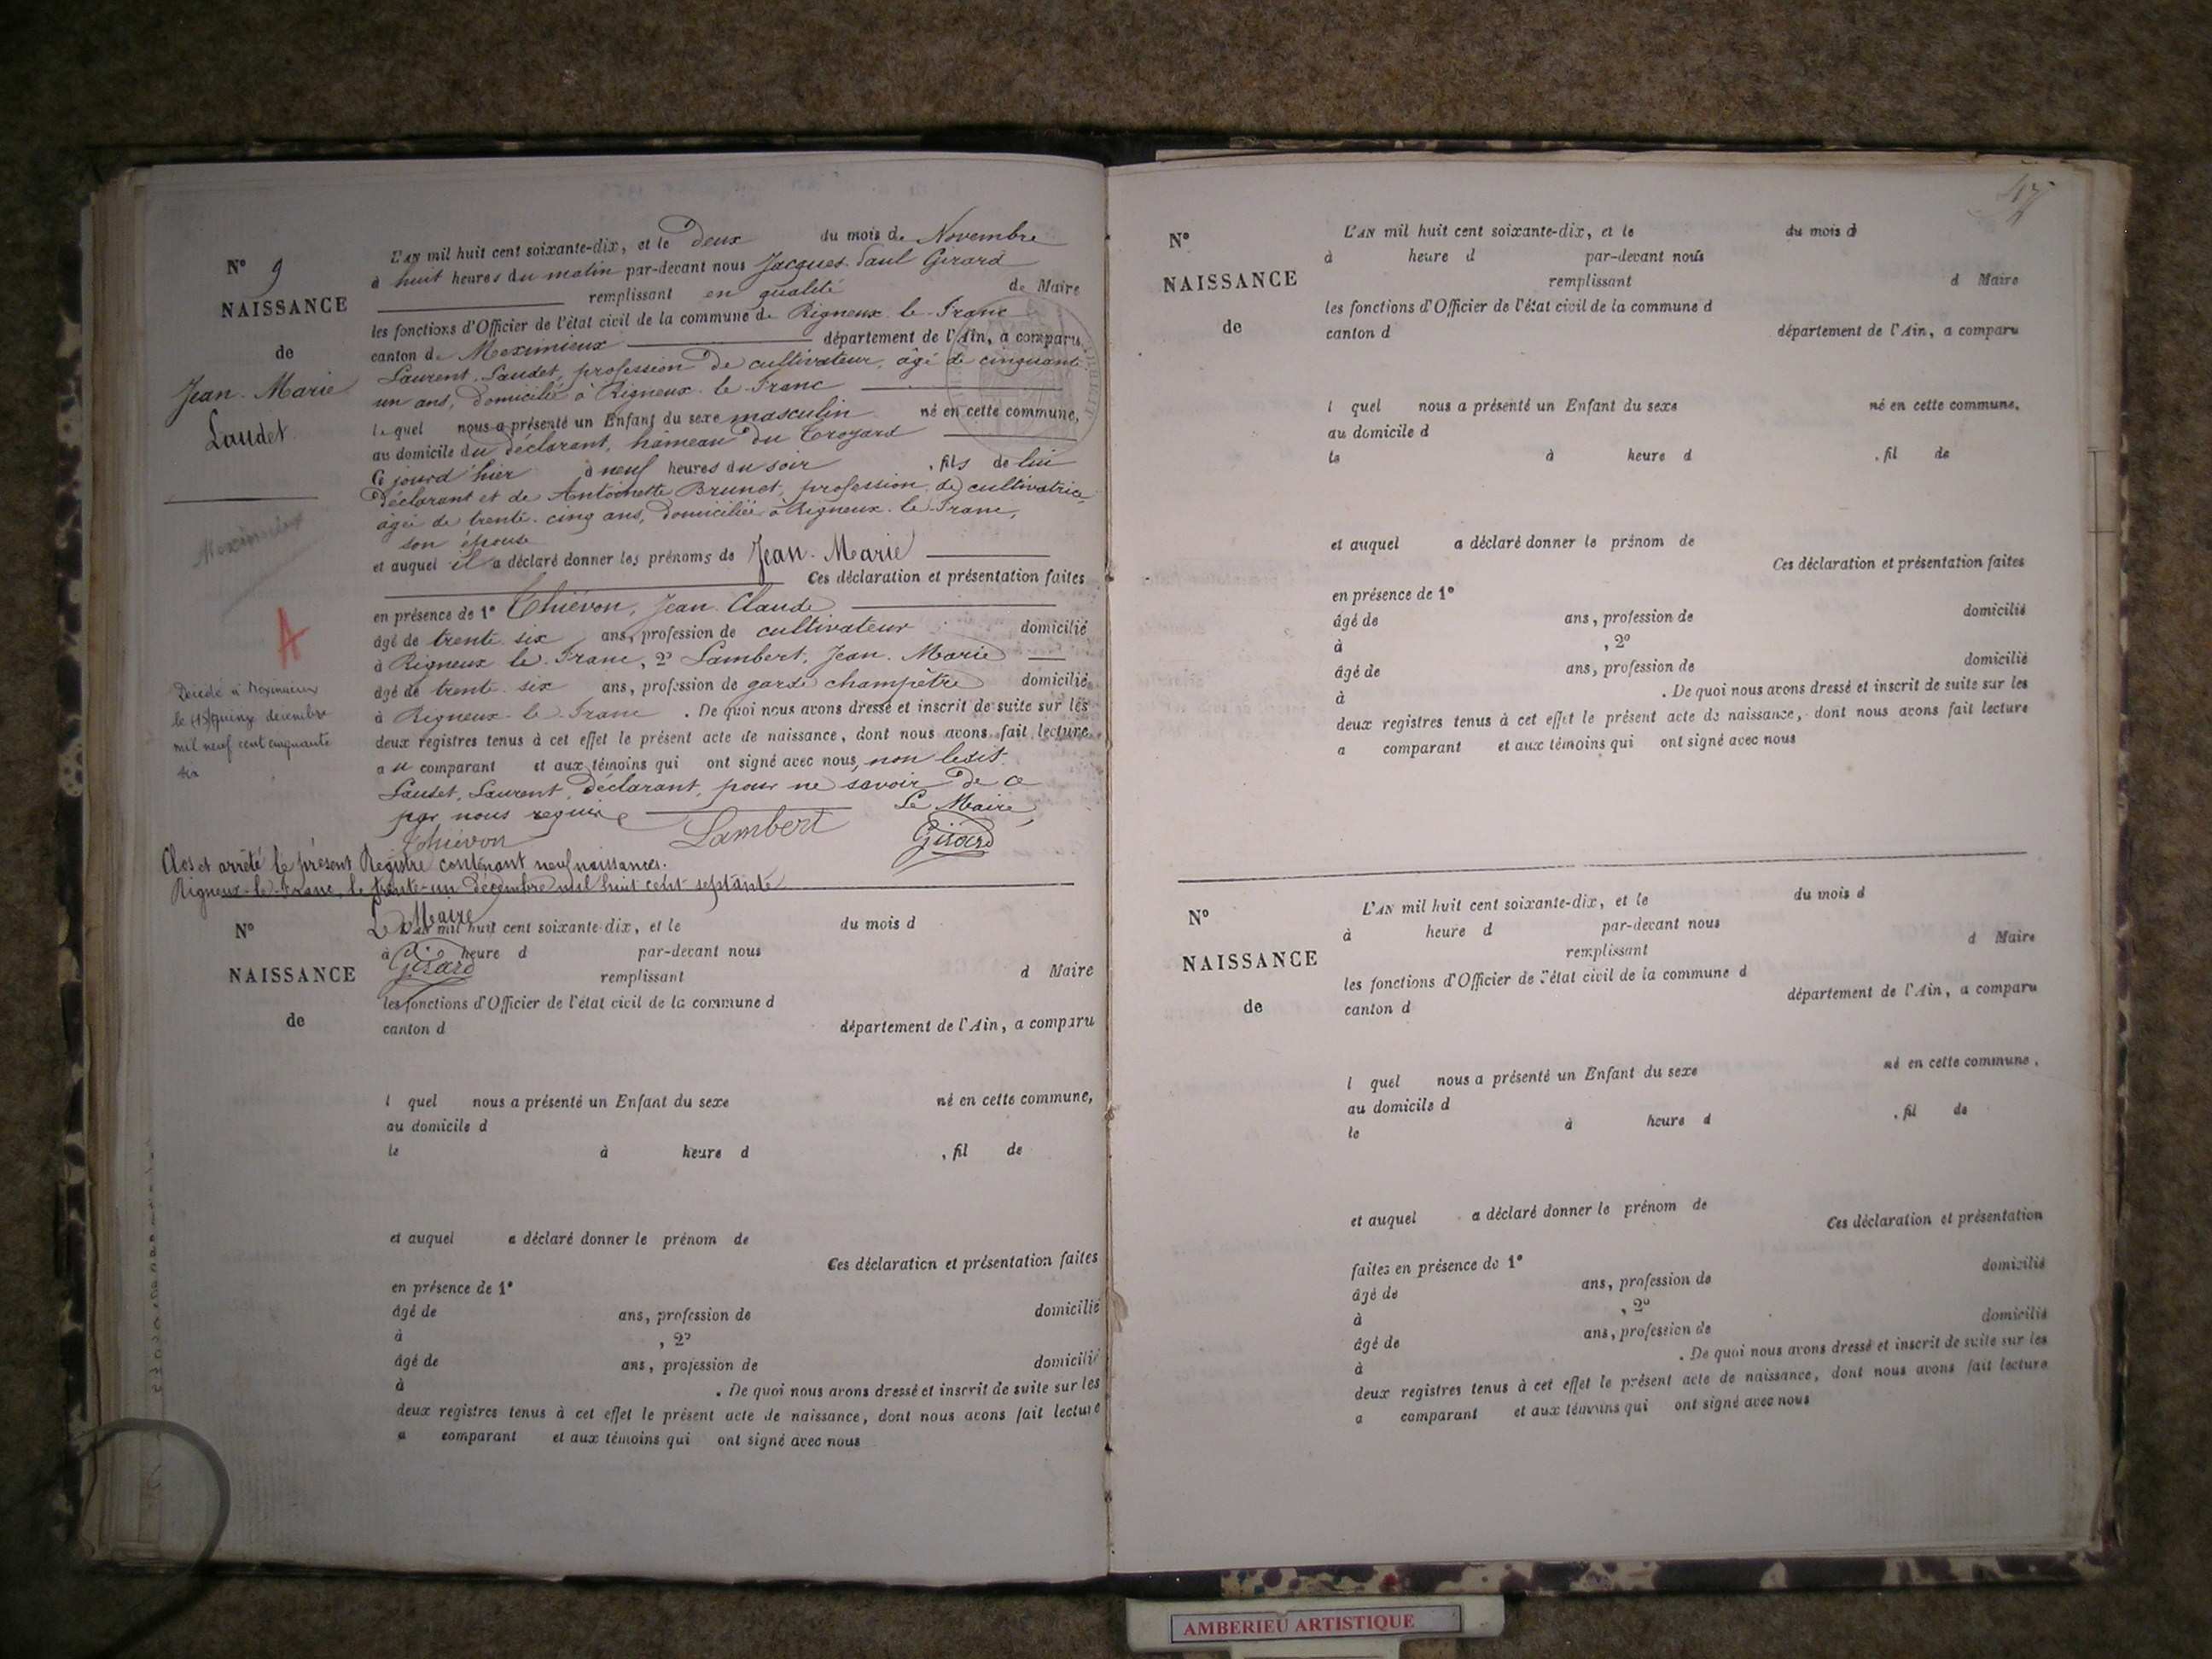 N° 9
NAISSANCE
de
Jean-Marie
Laudet
Meximieux
A
Décédé à Meximieux
le (15) quinze décembre
mil neuf cent cinquante
six
L'AN mil huit cent soixante-dix, et le Deux du mois de Novembre
à huit heures du matin par-devant nous Jacques-Paul Girard
remplissant en qualité de Maire
les fonctions d'Officier de l'état civil de la commune de Rigneux-le-Franc
canton de Meximieux département de l'Ain, a comparu
Laurent Laudet, profession de cultivateur, âgé de cinquante
un ans, domicilié à Rigneux-le-Franc
lequel nous a présenté un Enfant du sexe masculin né en cette commune,
au domicile du déclarant, hameau du Croyard
Ce jourd'hier à neuf heures du soir, fils de lui
Déclarant et de Antoinette Brunet, profession de cultivatrice
âgée de trente-cinq ans, domiciliée à Rigneux-le-Franc,
son épouse
et auquel il a déclaré donner les prénoms de Jean-Marie
Ces déclaration et présentation faites
en présence de 1° Thiévon, Jean-Claude
âgé de trente-six ans, profession de cultivateur domicilié
à Rigneux-le-Franc, 2° Lambert, Jean-Marie
âgé de trente-six ans, profession de garde champêtre domicilié
à Rigneux-le-Franc. De quoi nous avons dressé et inscrit de suite sur les
deux registres tenus à cet effet le présent acte de naissance, dont nous avons fait lecture
au comparant et aux témoins qui ont signé avec nous, non ledit
Laudet, Laurent, déclarant, pour ne savoir de ce
par nous requis
Le Maire,
Thiévon Lambert Girard
Clos et arrêté le présent Registre contenant neuf naissances.
Rigneux-le-Franc, le trente-un décembre mil huit cent septante
Le Maire
Girard
N°
NAISSANCE
de
L'AN mil huit cent soixante-dix, et le du mois d
à heure d par-devant nous
remplissant d Maire
les fonctions d'Officier de l'état civil de la commune d
canton d département de l'Ain, a comparu
l quel nous a présenté un Enfant du sexe né en cette commune,
au domicile d
le à heure d , fil de
et auquel a déclaré donner le prénom de
Ces déclaration et présentation faites
en présence de 1°
âgé de ans, profession de domicilié
à , 2°
âgé de ans, profession de domicilié
à . De quoi nous avons dressé et inscrit de suite sur les
deux registres tenus à cet effet le présent acte de naissance, dont nous avons fait lecture
a comparant et aux témoins qui ont signé avec nous
47
N°
NAISSANCE
de
L'AN mil huit cent soixante-dix, et le du mois d
à heure d par-devant nous
remplissant d Maire
les fonctions d'Officier de l'état civil de la commune d
canton d département de l'Ain, a comparu
l quel nous a présenté un Enfant du sexe né en cette commune,
au domicile d
le à heure d , fil de
et auquel a déclaré donner le prénom de
Ces déclaration et présentation faites
en présence de 1°
âgé de ans, profession de domicilié
à , 2°
âgé de ans, profession de domicilié
à . De quoi nous avons dressé et inscrit de suite sur les
deux registres tenus à cet effet le présent acte de naissance, dont nous avons fait lecture
a comparant et aux témoins qui ont signé avec nous
N°
NAISSANCE
de
L'AN mil huit cent soixante-dix, et le du mois d
à heure d par-devant nous
remplissant d Maire
les fonctions d'Officier de l'état civil de la commune d
canton d département de l'Ain, a comparu
l quel nous a présenté un Enfant du sexe né en cette commune,
au domicile d
le à heure d , fil de
et auquel a déclaré donner le prénom de
Ces déclaration et présentation
faites en présence de 1°
âgé de ans, profession de domicilié
à , 2°
âgé de ans, profession de domicilié
à . De quoi nous avons dressé et inscrit de suite sur les
deux registres tenus à cet effet le présent acte de naissance, dont nous avons fait lecture
a comparant et aux témoins qui ont signé avec nous
AMBERIEU ARTISTIQUE